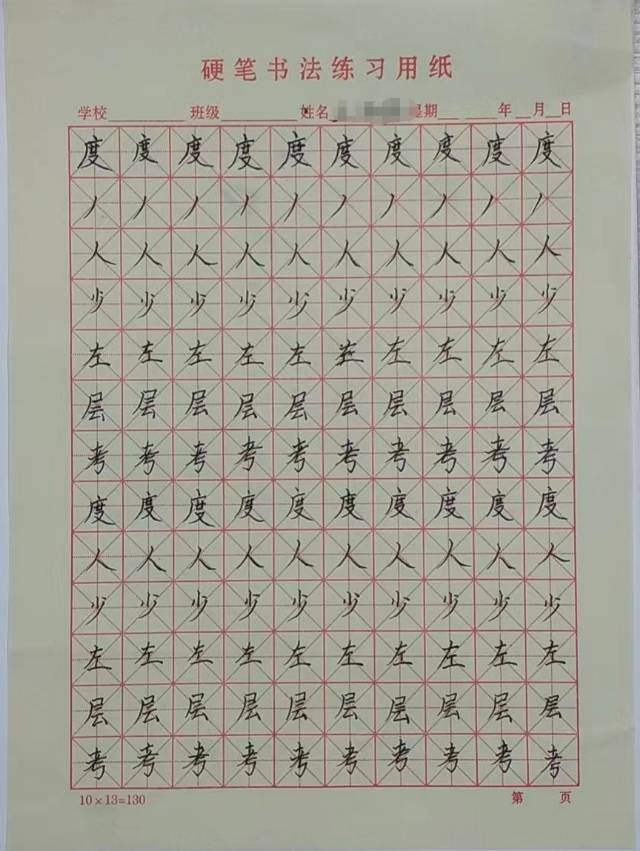 硬笔书法练习用纸
学校 班级 姓名 星期 年 月 日
度度度度度度度度度度
丿丿丿丿丿丿丿丿丿丿
人人人人人人人人人人
少少少少少少少少少少
左左左左左左左左左
层层层层层层层层层层
考考考考考考考考考考
度度度度度度度度度度
人人人人人人人人人人
少少少少少少少少少少
左左左左左左左左左左
层层层层层层层层层层
考考考考考考考考考考
10×13=130 第 页